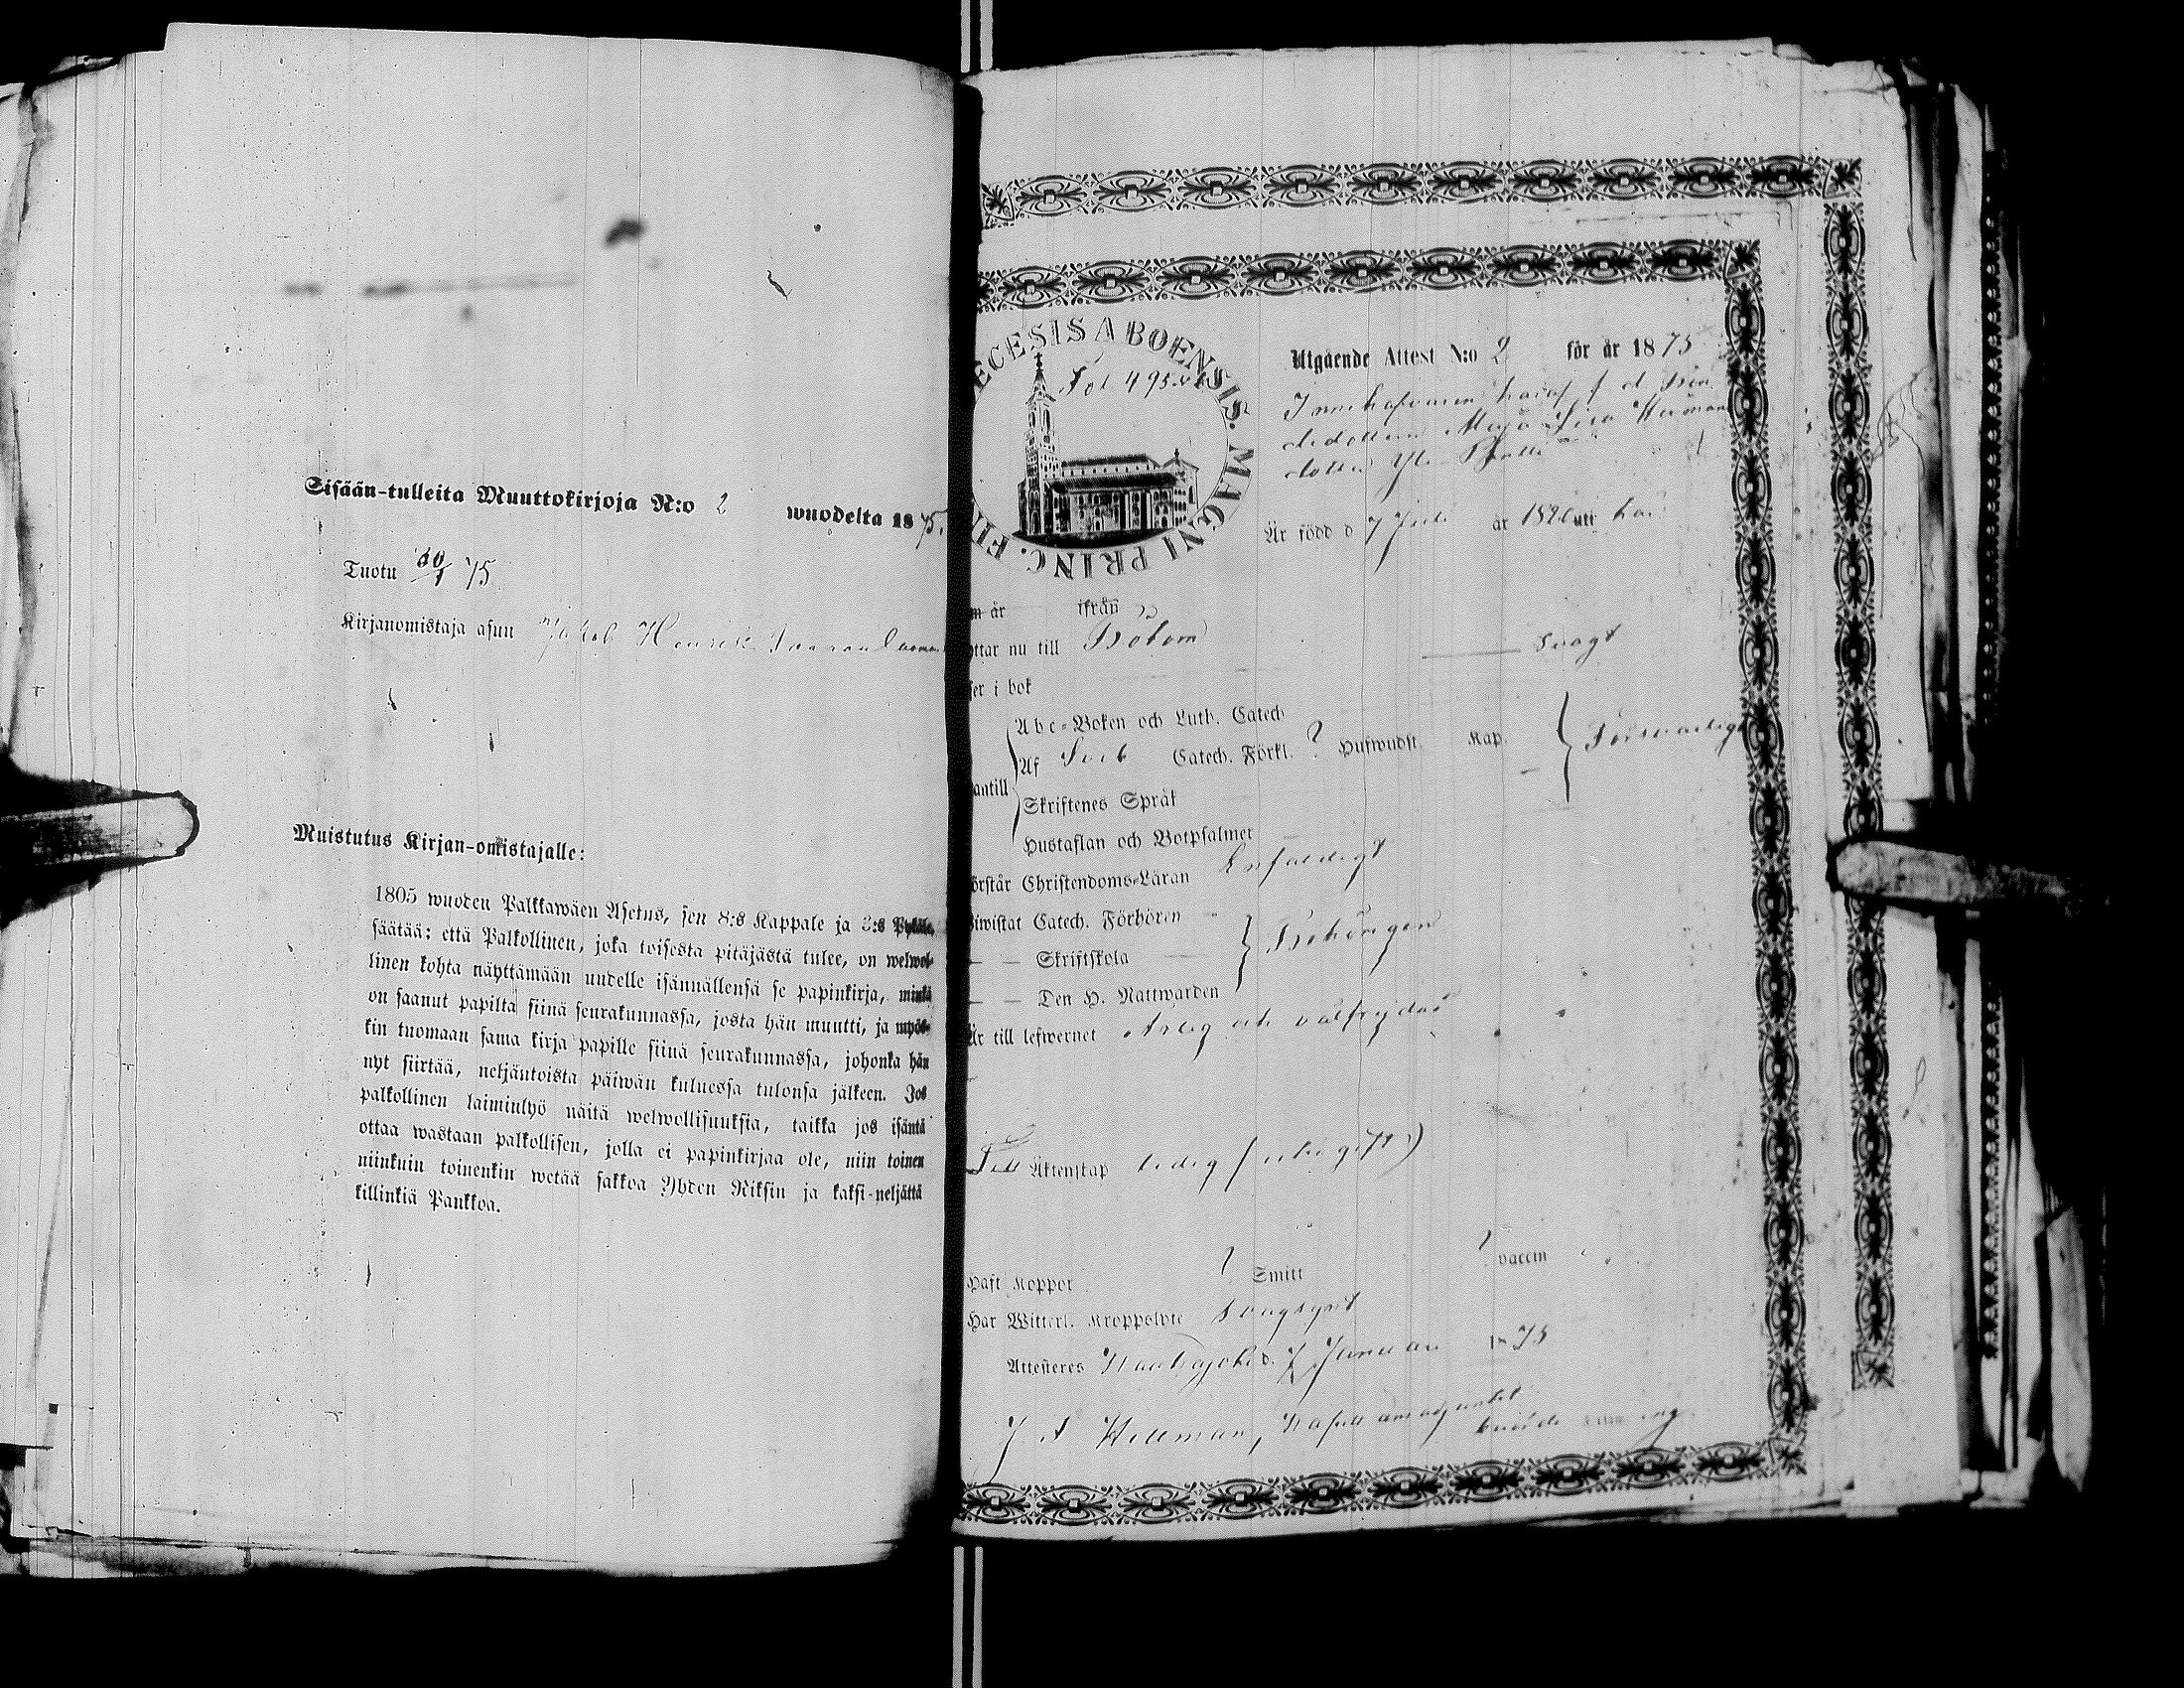 Sisään-tulleita Muuttokirjoja N:o 2 wuodelta 1875.
Tuotu 30/1 75
Kirjanomistaja asuu Jakob Henrik
Muistutus Kirjan-omistajalle:
1805 wuoden Palkkawäen Asetus, sen 8:s Kappale ja 3:s Pykälä,
säätää: että Palkollinen, joka toisesta pitäjästä tulee, on welwol-
linen kohta näyttämään uudelle isännällensä se papinkirja, minkä
on saanut papilta siinä seurakunnassa, josta hän muutti, ja myös-
kin tuomaan sama kirja papille siinä seurakunnassa, johonka hän
nyt siirtää, neljäntoista päiwän kuluessa tulonsa jälkeen. Jos
palkollinen laiminlyö näitä welwollisuuksia, taikka jos isäntä
ottaa wastaan palkollisen, jolla ei papinkirjaa ole, niin toinen
niinkuin toinenkin wetää sakkoa Yhden Riksin ja kaksi-neljättä
killinkiä Pankkoa.
ECESIS ABOENSIS. MAGNI PRINC. FI
Fol 495
Utgående Attest N:o 2 för år 1875
Innehafvaren häraf f d bon
dedottern Maja Lisa Herman
dotter Yli
Är född d 7 Juli år uti
år ifrån
ttar nu till Bötom
ser i bok Svagt
Abc-Boken och Luth. Catech
Af Sveb Catech. Förkl. ? Hufwudst. Kap. Försvarligt
antill
Skriftenes Språk
Hustaflan och Botpsalmer
örstår Christendoms-Läran Enfaldigt
iwistat Catech. Förhören
— — Skriftskola Behörigen
— — Den H. Nattwarden
Är till lefwernet Ärlig och välfrejdad
Till Äktenskap ledig (obegift)
Haft Koppor ? Smitt ? vaccin
Har Witterl. Kroppslyte svagsynt
Attesteres d. 7 Januari 1875
J A Hellman, Kapellansadjunkt